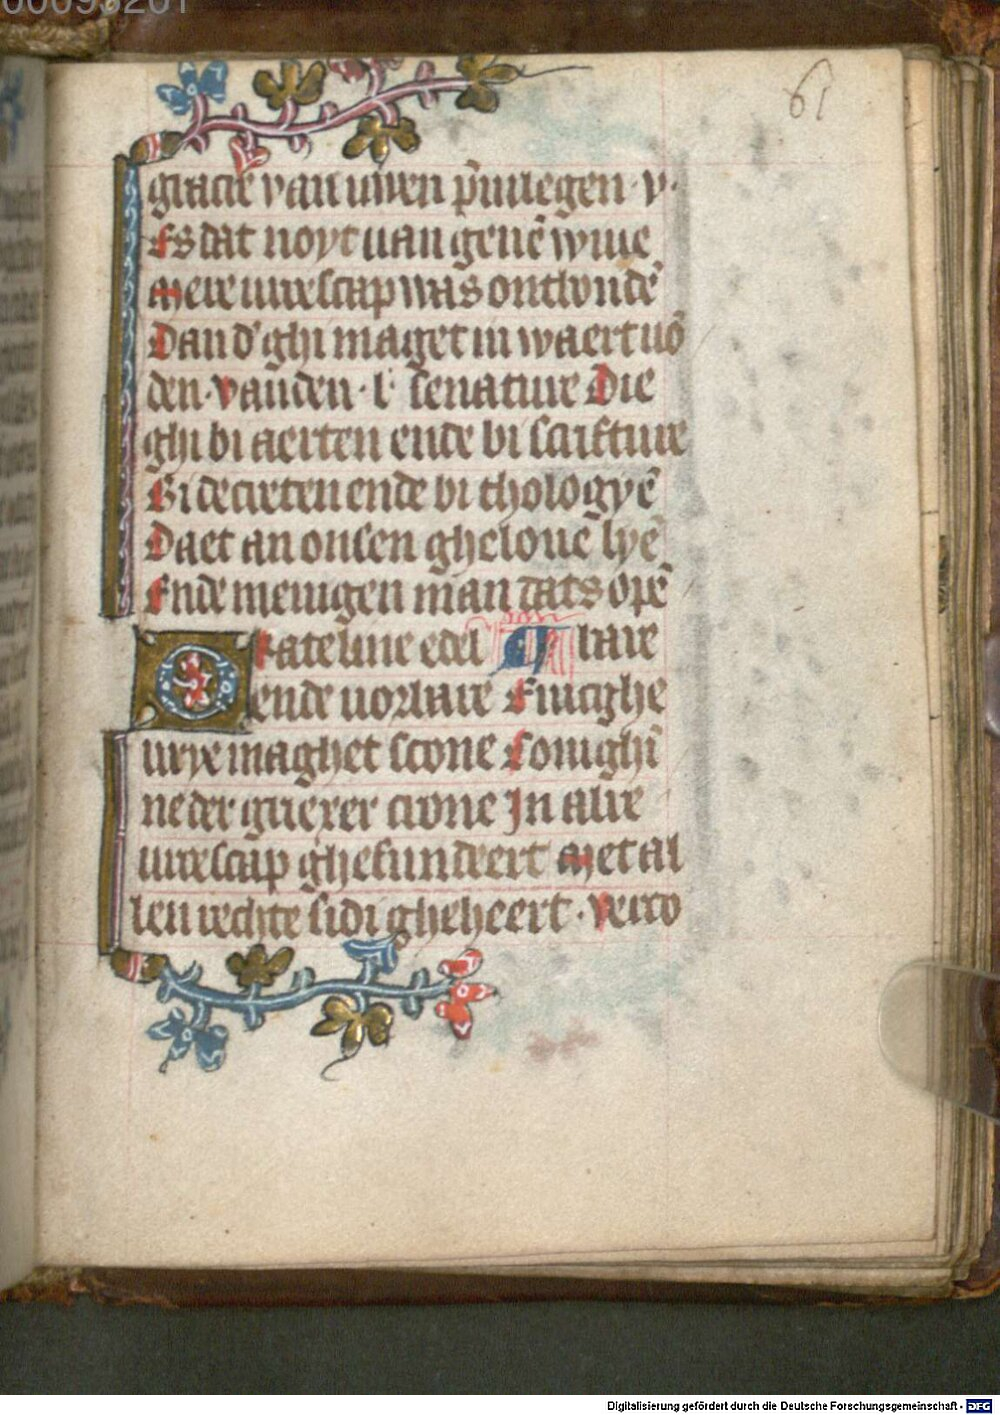 61
gracie van uwen p̄uilegen · v ·
Es dat noyt uan genē wiue
Mere urescap was ontbondē
Dan d' ghi maget in waert uō
den · vanden · l · senature Die
ghi bi aerten ende bi scrifture
Bi decreten ende bi thologyē
Daet an onsen ghelouē lyē
Ende menigen man dats opē
O kateline edel clare
ende uorbare Fuicghe
urye maghet scone Conighī
ne der grierer crone In alre
urescap ghefundeert Met al
len rechte sidi gheheert · verco
Digitalisierung gefördert durch die Deutsche Forschungsgemeinschaft - DFG